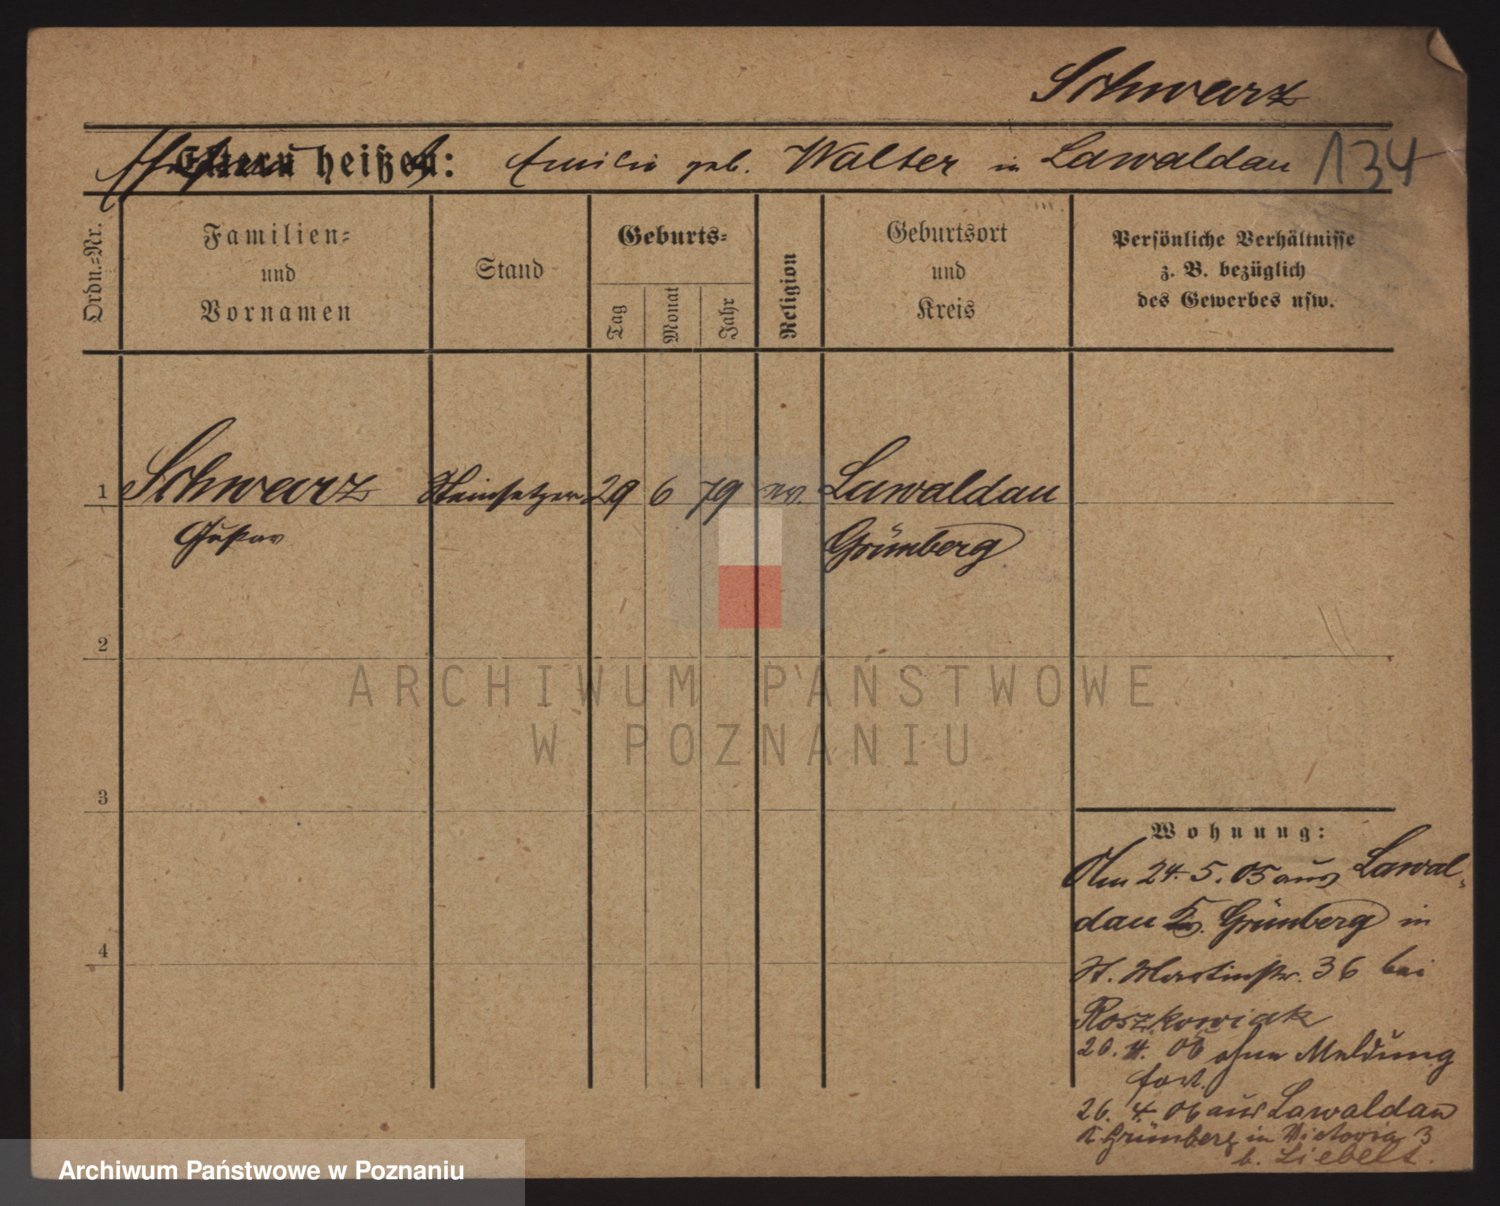 Schwarz
Eltern heißen: Emilie geb. Walter in Lawaldau 134
Ordn.-Nr.
Familien-
und
Vornamen
Stand
Geburts-
Tag
Monat
Jahr
Religion
Geburtsort
und
Kreis
Persönliche Verhältnisse
z. B. bezüglich
des Gewerbes usw.
1 Schwarz Steinsetzer 29 6 79 ev. Lawaldau
Gustav Grünberg
2
3
4
ARCHIWUM PAŃSTWOWE
W POZNANIU
Wohnung:
Am 24. 5. 05 aus Lawal-
dau Kr. Grünberg in
St. Martinstr. 36 bei
Roszkowiak
20. 11. 05 ohne Meldung
fort.
26. 4. 06 aus Lawaldau
K Grünberg in Victoria 3
b. Liebelt.
Archiwum Państwowe w Poznaniu